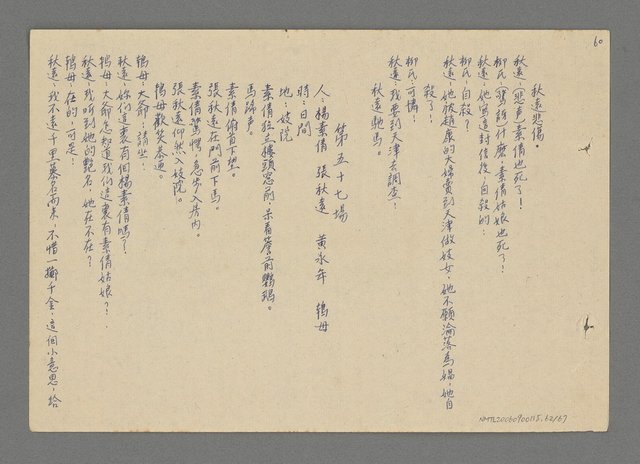 60
秋遠悲傷。
秋遠：(悲声)素倩也死了！
柳氏：(驚)說什麼，素倩姑娘也死了！
秋遠：她寫這封信後，自殺的：
柳氏：自殺？
秋遠：她被趙康的大婦賣到天津做妓女，她不願淪落為娼，她自
殺了！
柳氏：可憐！
秋遠：我要到天津去調查！
秋遠馳馬。
第五十七場
人：楊素倩 張秋遠 黃永年 鴇母
時：日間
地：妓院
素倩独立樓頭窓前，呆看簷前鸚鵡。
馬蹄声。
素倩俯首下望。
張秋遠在門前下馬。
素倩驚愕，急步入房內。
張秋遠仰然入妓院。
鴇母歡笑恭迎。
鴇母：大爺，請坐：
秋遠：妳们這裏有個楊素倩嗎？
鴇母：大爺怎知道我们這裏有素倩姑娘？
秋遠：我听到她的艷名，她在不在？
鴇母：在的，可是：
秋遠：我不遠千里慕名而來，不惜一擲千金，這個小意思，給
NMTL20060900115.62/67